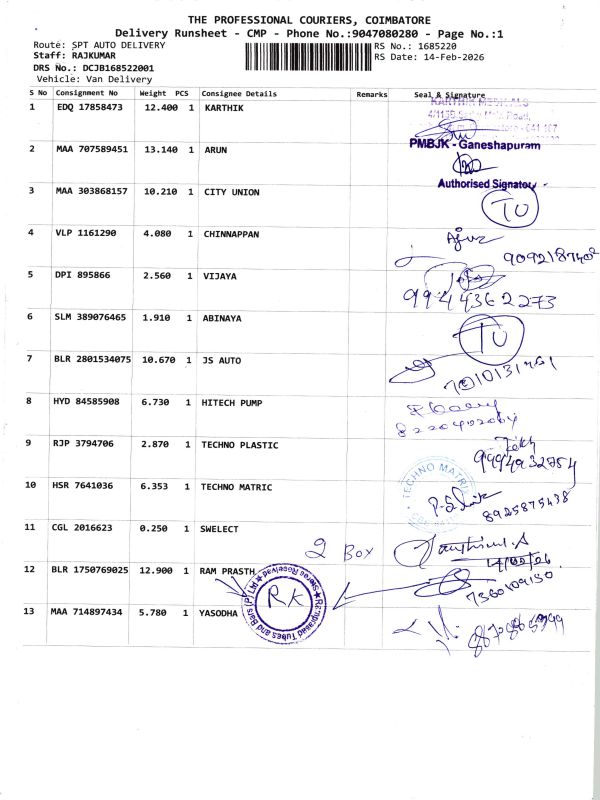 THE PROFESSIONAL COURIERS, COIMBATORE
Delivery Runsheet - CMP - Phone No.:9047080280 - Page No.:1
Route: SPT AUTO DELIVERY RS No.: 1685220
Staff: RAJKUMAR RS Date: 14-Feb-2026
DRS No.: DCJB168522001
Vehicle: Van Delivery
S No Consignment No Weight PCS Consignee Details Remarks Seal & Signature
KARTHIK MEDICALS
1 EDQ 17858473 12.400 1 KARTHIK
2 MAA 707589451 13.140 1 ARUN PMBJK - Ganeshapuram
Authorised Signatory
3 MAA 303868157 10.210 1 CITY UNION TU
4 VLP 1161290 4.080 1 CHINNAPPAN
9092187402
5 DPI 895866 2.560 1 VIJAYA
9944362273
6 SLM 389076465 1.910 1 ABINAYA TU
7 BLR 2801534075 10.670 1 JS AUTO
8 HYD 84585908 6.730 1 HITECH PUMP
9 RJP 3794706 2.870 1 TECHNO PLASTIC
9994932754
10 HSR 7641036 6.353 1 TECHNO MATRIC TECHNO MATRIC
8925875438
11 CGL 2016623 0.250 1 SWELECT
2 Box
12 BLR 1750769025 12.900 1 RAM PRASTH
7360109130
RK
13 MAA 714897434 5.780 1 YASODHA
Tubes and Bars (P) Ltd Stores Received